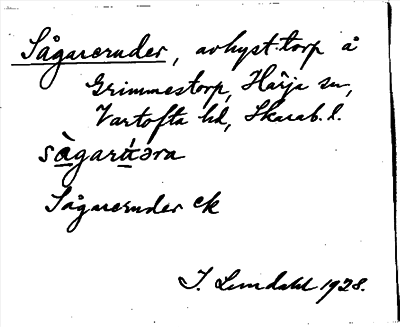 Sågareruder, avhyst. torp å
Grimmestorp, Härja sn,
Vartofta hd, Skarab. l.
Sågareruder ek
I. Lundahl 1928.